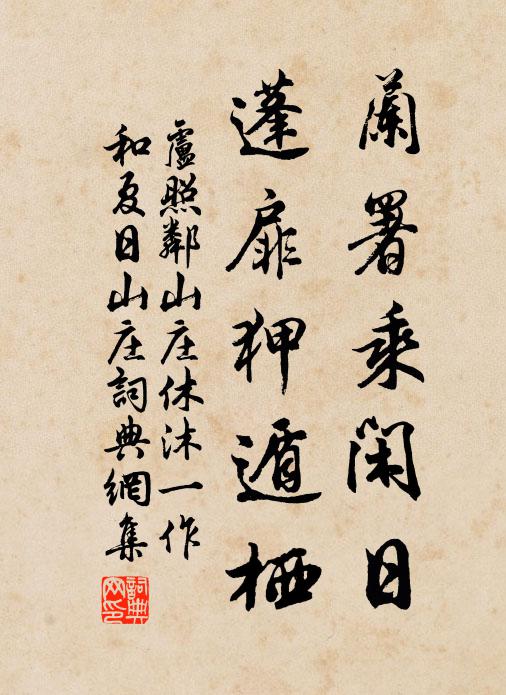 蘭署乘閑日
蓬扉狎遁栖
盧照鄰山庄休沐一作
和夏日山庄詞典網集
詞典网印